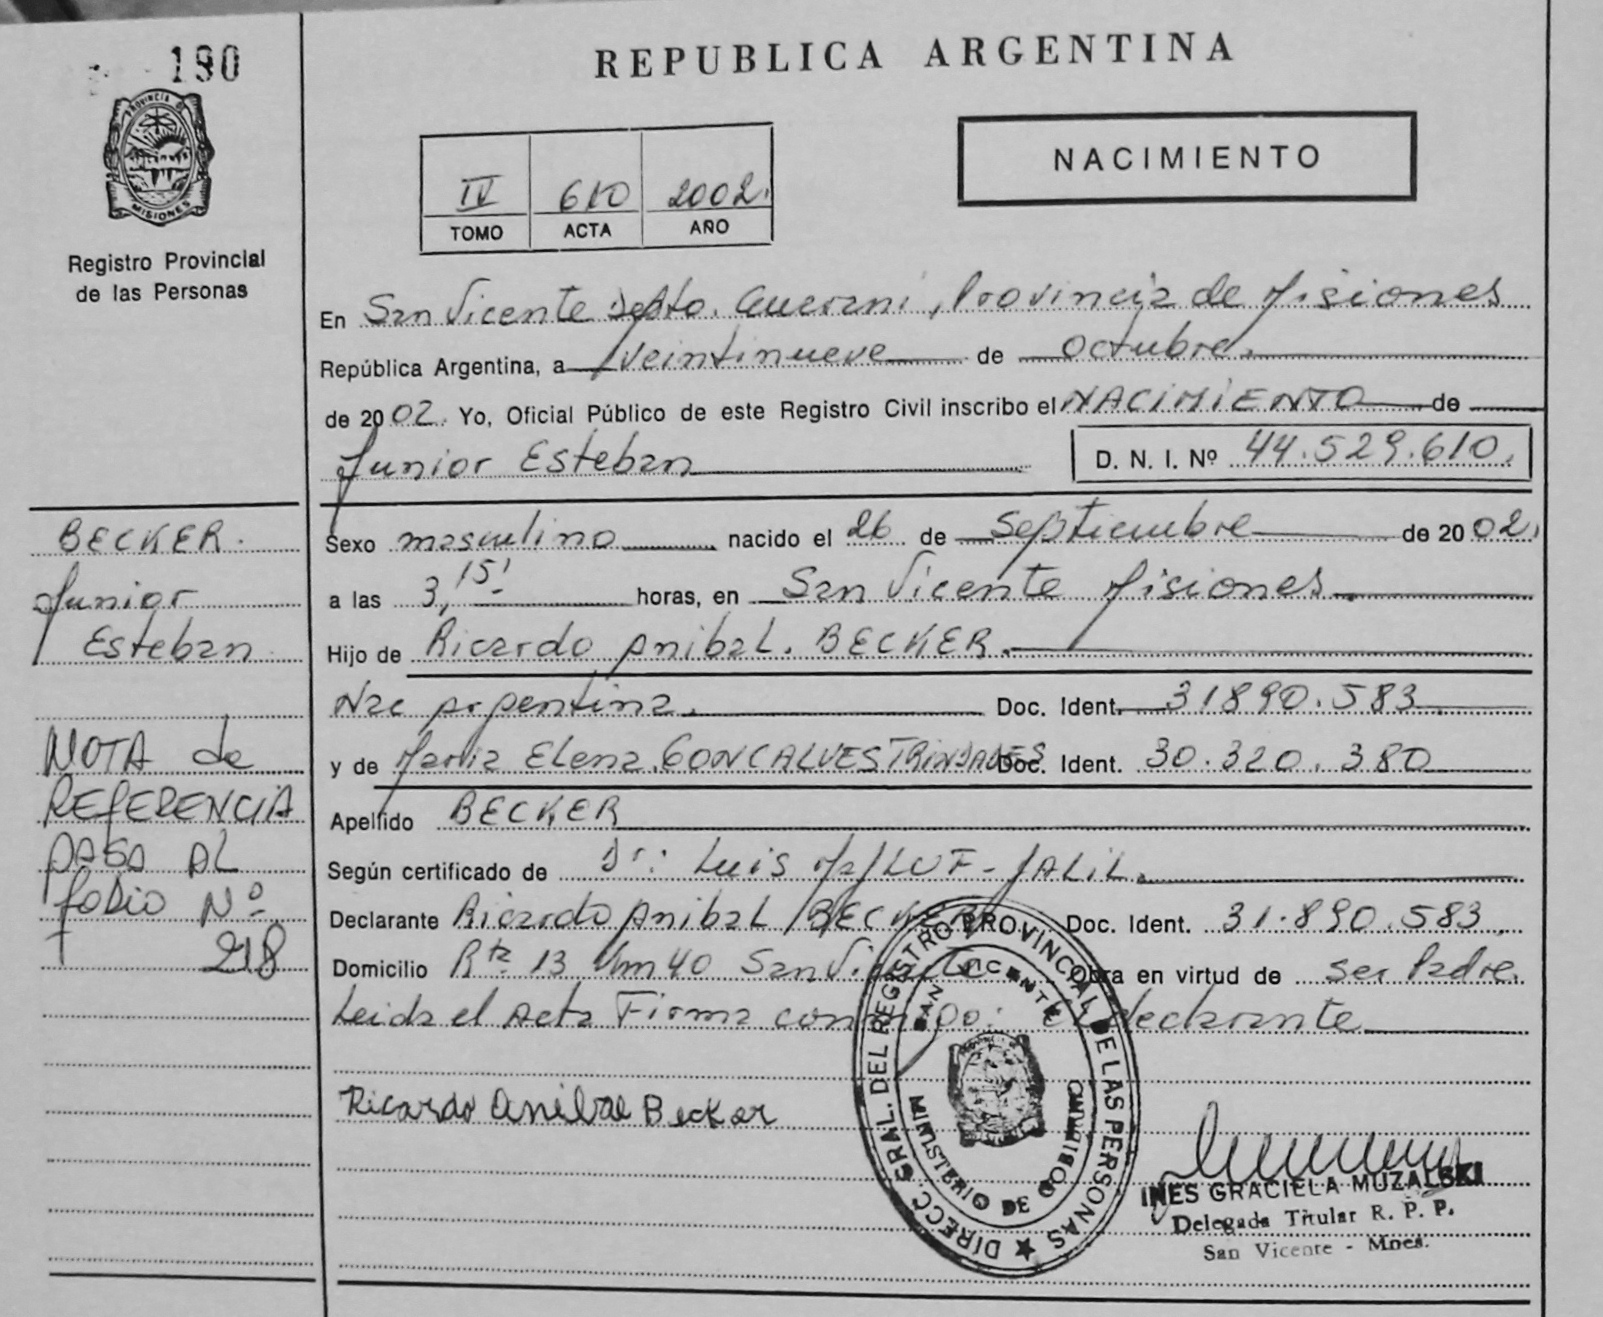 190
PROVINCIA DE
MISIONES
Registro Provincial
de las Personas
REPUBLICA ARGENTINA
NACIMIENTO
IV 610 2002.
TOMO ACTA AÑO
En San Vicente Depto. Guarani, Provincia de Misiones
República Argentina, a veintinueve de octubre.
de 2002. Yo, Oficial Público de este Registro Civil inscribo el NACIMIENTO de
Junior Esteban
D. N. I. Nº 44.529.610.
BECKER.
Junior
Esteban
NOTA de
REFERENCIA
PASA AL
folio Nº
218
Sexo masculino nacido el 26 de Septiembre de 2002.
a las 3,15' horas, en San Vicente Misiones.
Hijo de Ricardo Anibal. BECKER.
Nac Argentina. Doc. Ident. 31890.583
y de Maria Elena. GONCALVES TRINDADES Doc. Ident. 30.320.380
Apellido BECKER
Según certificado de Dr: Luis MA/LUF-JALIL.
Declarante Ricardo Anibal BECKER Doc. Ident. 31.890.583.
Domicilio Rta 13 Km 40 San Vicente Obra en virtud de ser Padre.
Leida el Acta Firma conmigo: el declarante
Ricardo Anibal Becker
DIRECC. GRAL. DEL REGISTRO PROVINCIAL DE LAS PERSONAS
SAN VICENTE
MINISTERIO DE GOBIERNO
INES GRACIELA MUZALSKI
Delegada Titular R. P. P.
San Vicente - Mnes.